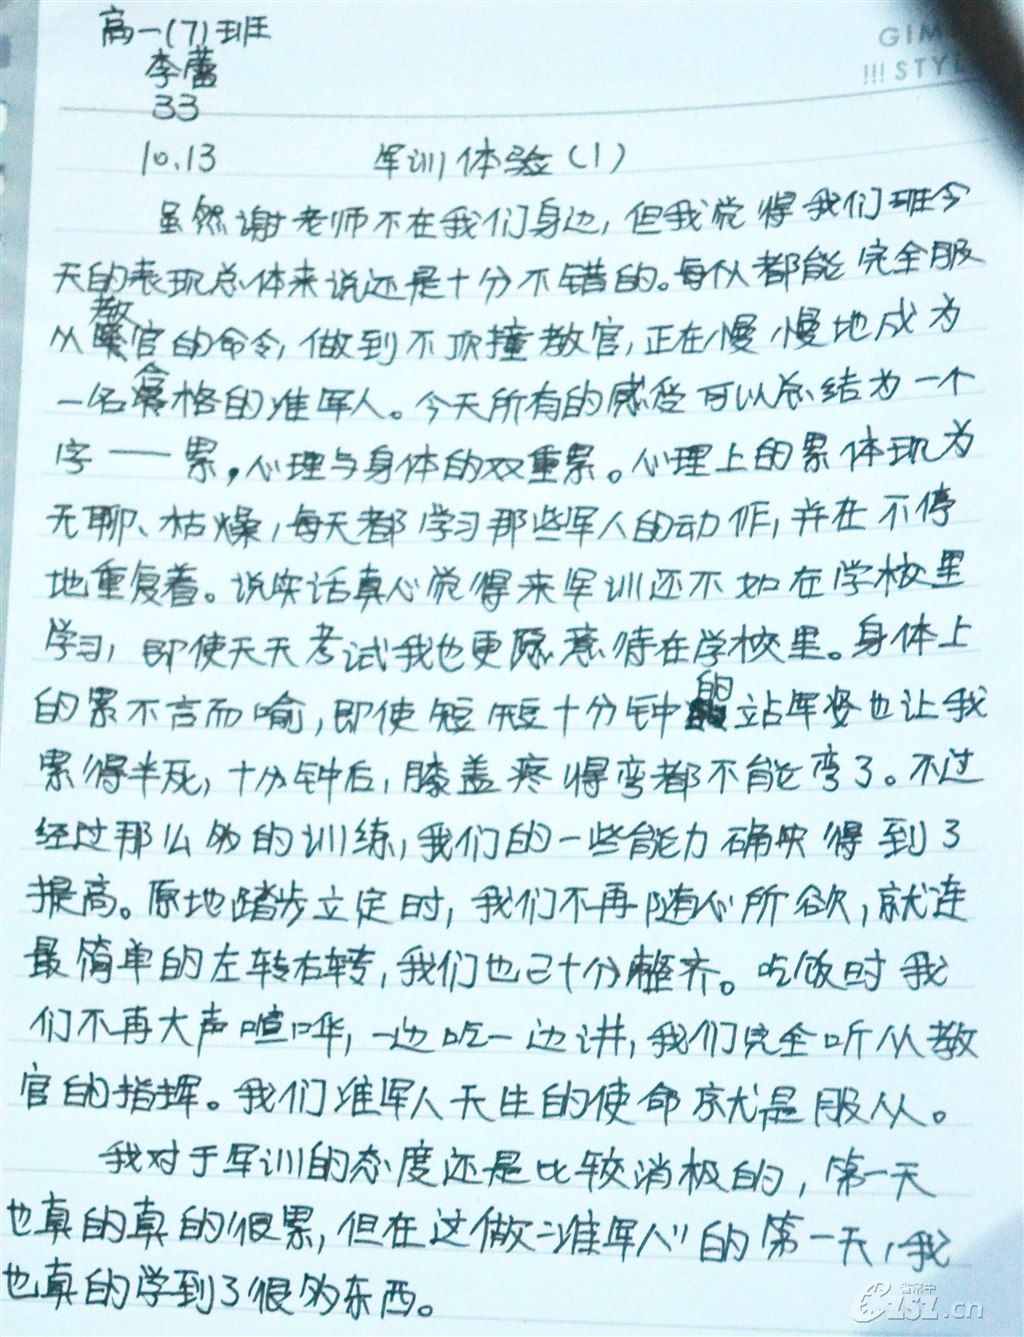 高一(7)班
李蕾
33
10.13 军训体验(1)
虽然谢老师不在我们身边,但我觉得我们班今
天的表现总体来说还是十分不错的。每个人都能完全服
从教官的命令,做到不顶撞教官,正在慢慢地成为
一名合格的准军人。今天所有的感受可以总结为一个
字——累,心理与身体的双重累。心理上的累体现为
无聊、枯燥,每天都学习那些军人的动作,并在不停
地重复着。说实话真心觉得来军训还不如在学校里
学习,即使天天考试我也更愿意待在学校里。身体上
的累不言而喻,即使短短十分钟的站军姿也让我
累得半死,十分钟后,膝盖疼得弯都不能弯了。不过
经过那么多的训练,我们的一些能力确实得到了
提高。原地踏步立定时,我们不再随心所欲,就连
最简单的左转右转,我们也已十分整齐。吃饭时我
们不再大声喧哗,一边吃一边讲,我们完全听从教
官的指挥。我们准军人天生的使命就是服从。
我对于军训的态度还是比较消极的,第一天
也真的真的很累,但在这做“准军人”的第一天,我
也真的学到了很多东西。
GIM
!!! STYL
省常中
1s1.cn